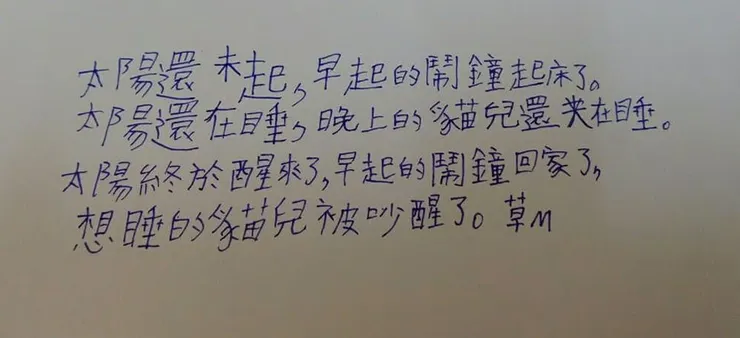 太陽還未起,早起的鬧鐘起床了。
太陽還在睡,晚上的貓兒還在睡。
太陽終於醒來了,早起的鬧鐘回家了,
想睡的貓兒被吵醒了。草M